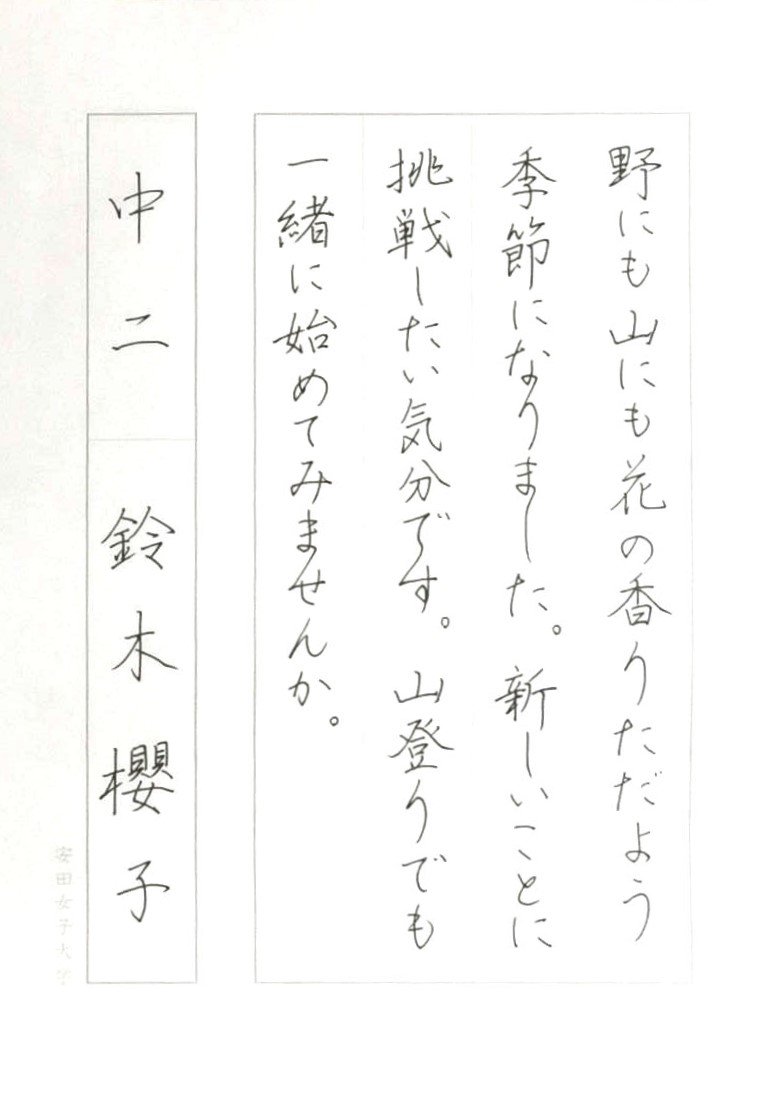 野にも山にも花の香りただよう
季節になりました。新しいことに
挑戦したい気分です。山登りでも
一緒に始めてみませんか。
中二 鈴木櫻子
安田女子大学